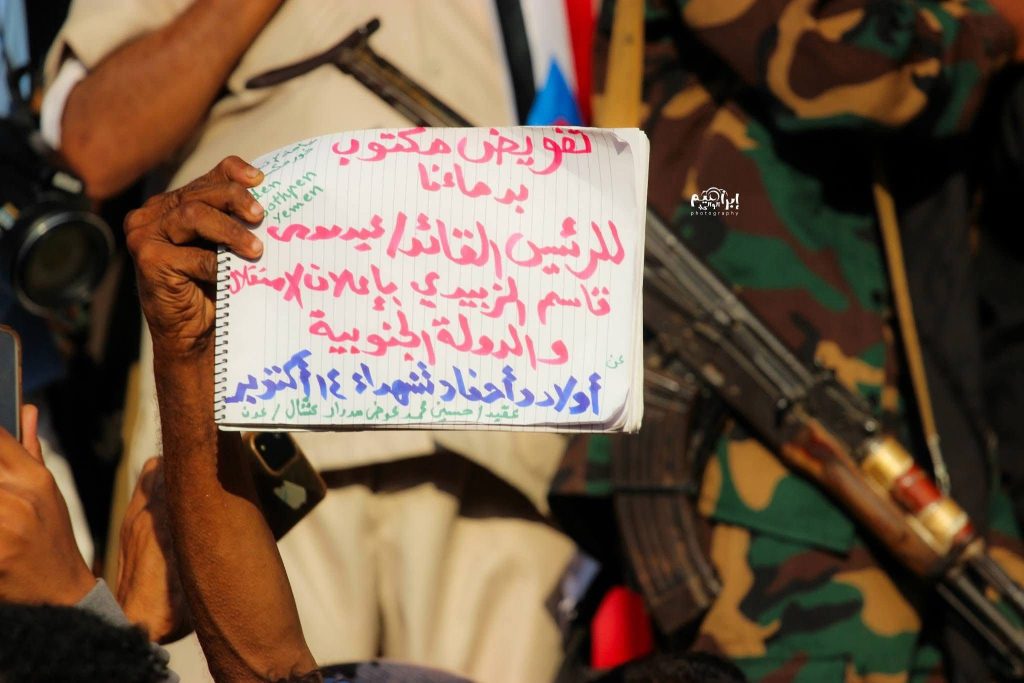 تفويض مكتوب
بدماءنا
للرئيس القائد/عيدروس
قاسم الزبيدي بإعلان الاستقلال
والدولة الجنوبية
عن
أولاد وأحفاد شهداء ١٤ أكتوبر
عقيد/حسين محمد عوض مدرار عشال/عدن
yemen
ابراهيم
photography